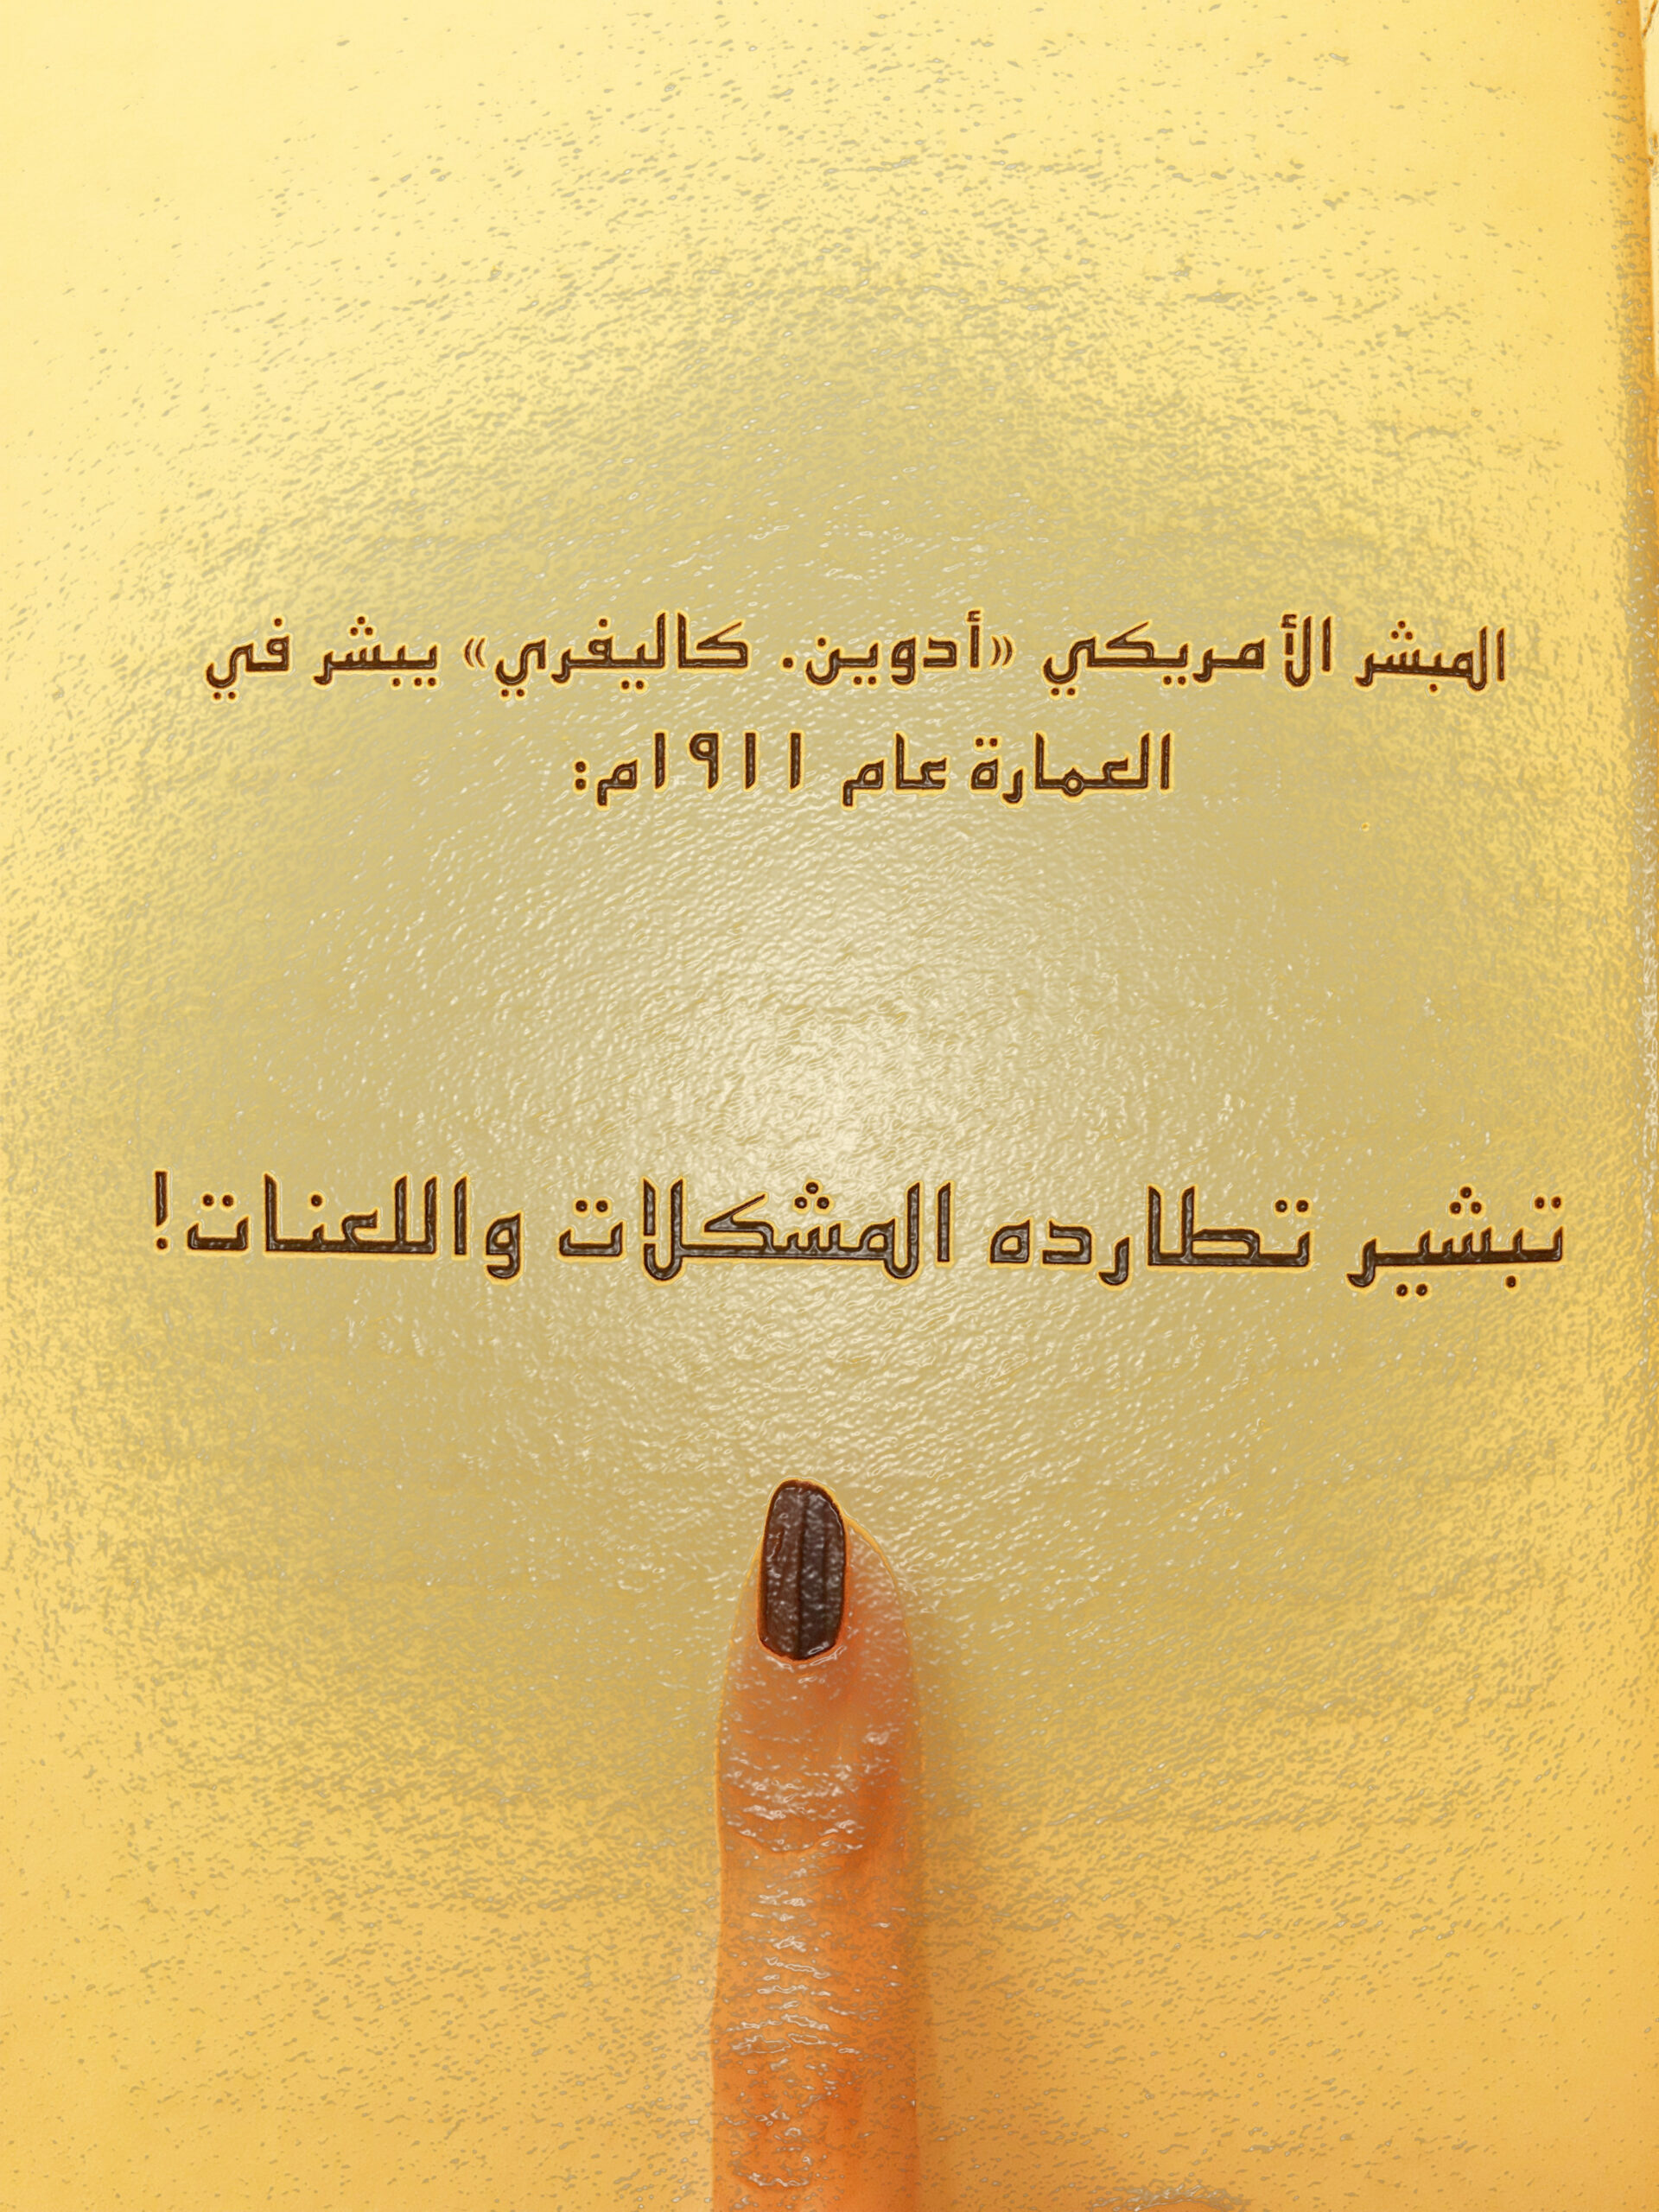 المبشر الأمريكي «أدوين. كاليفري» يبشر في
العمارة عام ١٩١١م:
تبشير تطارده المشكلات واللعنات!